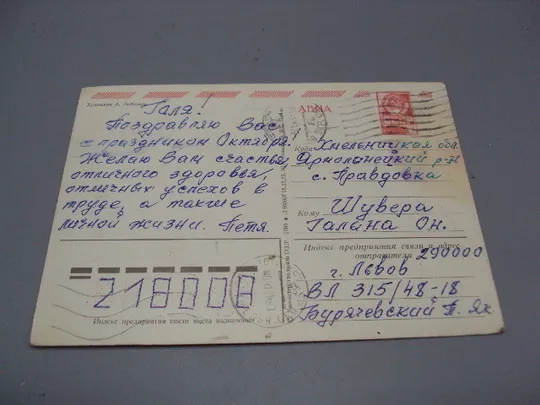 Художник А.
АВИА
Галя!
Поздравляю Вас
с праздником Октября.
Желаю Вам счастья,
отличного здоровья,
отличных успехов в
труде, а также
личной жизни. Петя.
Куда Хмельницкая обл.
Ярмолинецкий р-н
с. Правдовка
Кому Шувера
Галина Он.
Индекс предприятия связи и адрес
отправителя 290000
г. Львов
ВЛ 315/48-18
Бурячевский П. Як
218008
Индекс предприятия связи места назначения